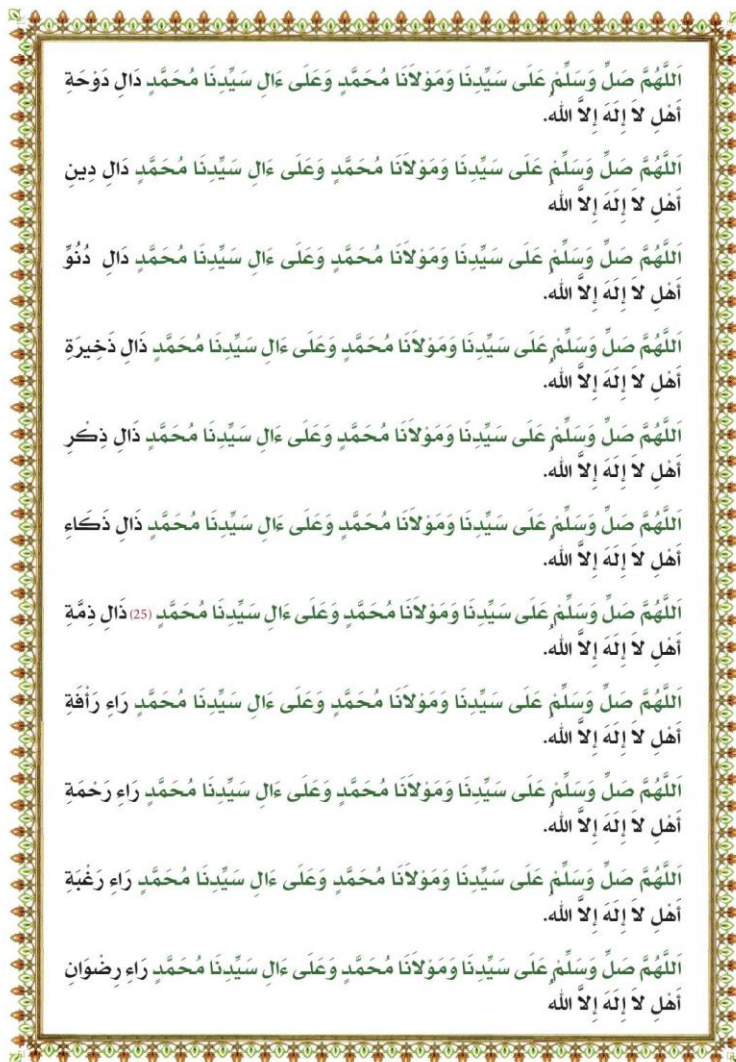 اَللَّهُمَّ صَلِّ وَسَلِّمْ عَلَى سَيِّدِنَا وَمَوْلَانَا مُحَمَّدٍ وَعَلَى ءَالِ سَيِّدِنَا مُحَمَّدٍ دَالِ دَوْحَةِ
أَهْلِ لاَ إِلَهَ إِلاَّ الله.
اَللَّهُمَّ صَلِّ وَسَلِّمْ عَلَى سَيِّدِنَا وَمَوْلَانَا مُحَمَّدٍ وَعَلَى ءَالِ سَيِّدِنَا مُحَمَّدٍ دَالِ دِينِ
أَهْلِ لاَ إِلَهَ إِلاَّ الله
اَللَّهُمَّ صَلِّ وَسَلِّمْ عَلَى سَيِّدِنَا وَمَوْلَانَا مُحَمَّدٍ وَعَلَى ءَالِ سَيِّدِنَا مُحَمَّدٍ دَالِ دُنُوِّ
أَهْلِ لاَ إِلَهَ إِلاَّ الله.
اَللَّهُمَّ صَلِّ وَسَلِّمْ عَلَى سَيِّدِنَا وَمَوْلَانَا مُحَمَّدٍ وَعَلَى ءَالِ سَيِّدِنَا مُحَمَّدٍ ذَالِ ذَخِيرَةِ
أَهْلِ لاَ إِلَهَ إِلاَّ الله.
اَللَّهُمَّ صَلِّ وَسَلِّمْ عَلَى سَيِّدِنَا وَمَوْلَانَا مُحَمَّدٍ وَعَلَى ءَالِ سَيِّدِنَا مُحَمَّدٍ ذَالِ ذِكْرِ
أَهْلِ لاَ إِلَهَ إِلاَّ الله.
اَللَّهُمَّ صَلِّ وَسَلِّمْ عَلَى سَيِّدِنَا وَمَوْلَانَا مُحَمَّدٍ وَعَلَى ءَالِ سَيِّدِنَا مُحَمَّدٍ ذَالِ ذَكَاءِ
أَهْلِ لاَ إِلَهَ إِلاَّ الله.
اَللَّهُمَّ صَلِّ وَسَلِّمْ عَلَى سَيِّدِنَا وَمَوْلَانَا مُحَمَّدٍ وَعَلَى ءَالِ سَيِّدِنَا مُحَمَّدٍ (25) ذَالِ ذِمَّةِ
أَهْلِ لاَ إِلَهَ إِلاَّ الله.
اَللَّهُمَّ صَلِّ وَسَلِّمْ عَلَى سَيِّدِنَا وَمَوْلَانَا مُحَمَّدٍ وَعَلَى ءَالِ سَيِّدِنَا مُحَمَّدٍ رَاءِ رَأْفَةِ
أَهْلِ لاَ إِلَهَ إِلاَّ الله.
اَللَّهُمَّ صَلِّ وَسَلِّمْ عَلَى سَيِّدِنَا وَمَوْلَانَا مُحَمَّدٍ وَعَلَى ءَالِ سَيِّدِنَا مُحَمَّدٍ رَاءِ رَحْمَةِ
أَهْلِ لاَ إِلَهَ إِلاَّ الله.
اَللَّهُمَّ صَلِّ وَسَلِّمْ عَلَى سَيِّدِنَا وَمَوْلَانَا مُحَمَّدٍ وَعَلَى ءَالِ سَيِّدِنَا مُحَمَّدٍ رَاءِ رَغْبَةِ
أَهْلِ لاَ إِلَهَ إِلاَّ الله.
اَللَّهُمَّ صَلِّ وَسَلِّمْ عَلَى سَيِّدِنَا وَمَوْلَانَا مُحَمَّدٍ وَعَلَى ءَالِ سَيِّدِنَا مُحَمَّدٍ رَاءِ رِضْوَانِ
أَهْلِ لاَ إِلَهَ إِلاَّ الله